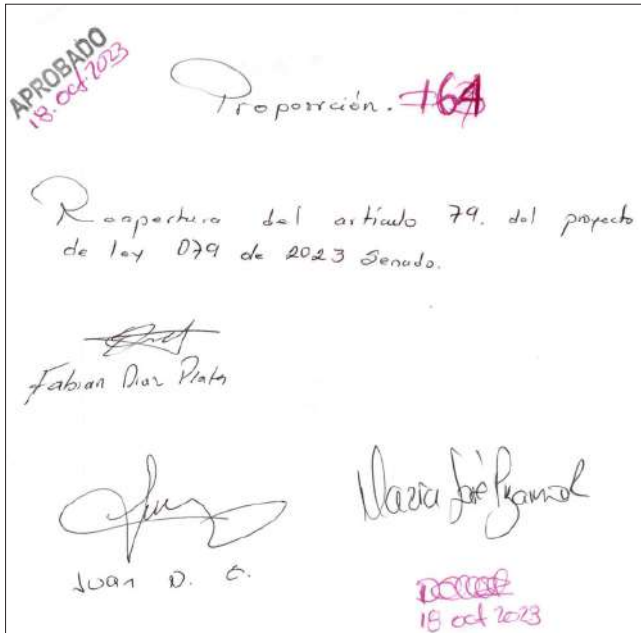 APROBADO
18. oct. 2023
Proposición. 164
Reapertura del artículo 79. del proyecto
de ley 079 de 2023 Senado.
Fabian Diaz Plata
Maria José Pizarro
Juan D. E.
18 oct 2023